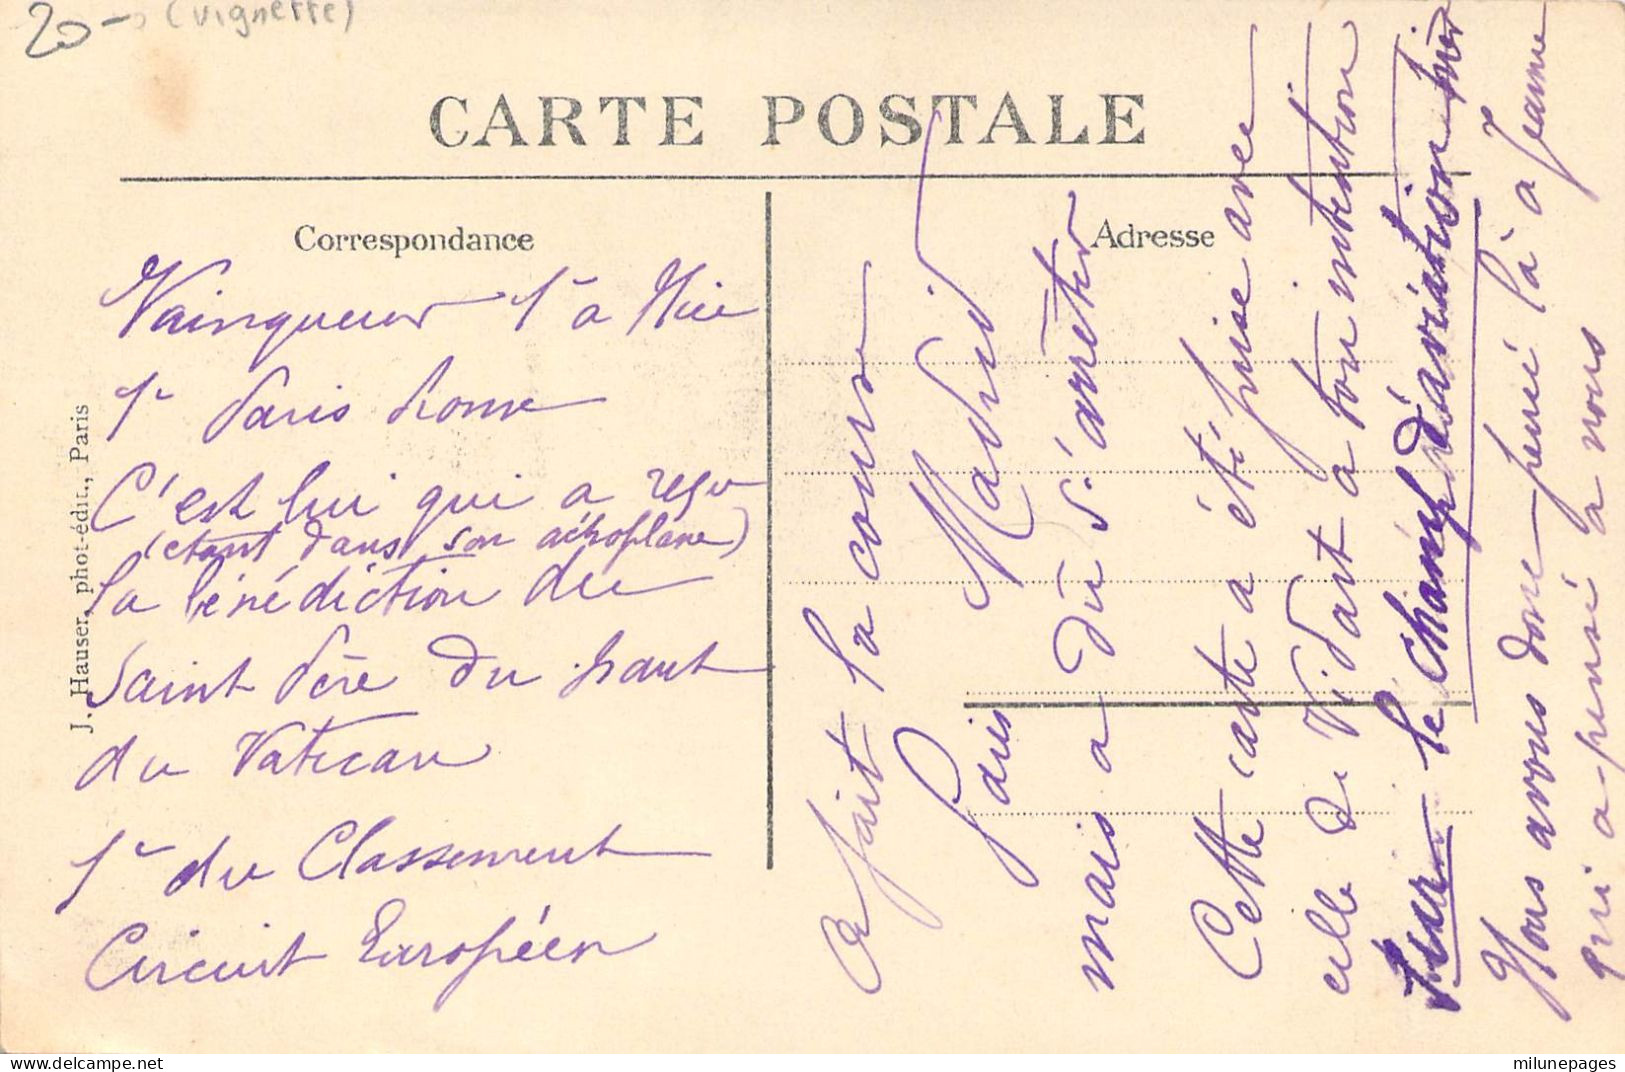 20 - (vignette)
CARTE POSTALE
Correspondance
Adresse
J. Hauser, phot-édit., Paris
Vainqueur 1r a Nice
1r Paris Rome
C'est lui qui a reçu
(étant dans son aéroplane)
la bénédiction du
Saint Père du haut
du Vatican
1r du Classement
Circuit Européen
a fait la course
Paris Madrid
mais a du s'arrêter
Cette carte a été prise avec
celle de Vidart a ton intention
sur le champ d'aviation hier
Nous avons donc pensé là à Jeanne
qui a pensé à nous
delcampe.net
milunepages